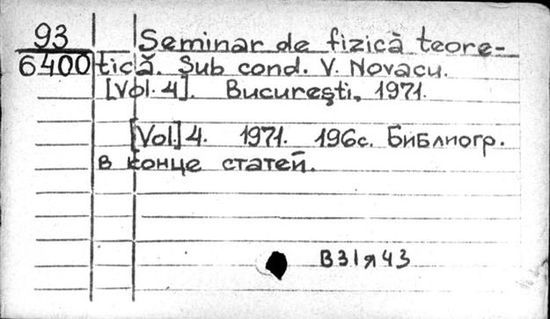 93
6400
Seminar de fizică teore-
tică. Sub cond. V. Novacu.
[Vol. 4]. Bucureşti, 1971.
[Vol.] 4. 1971. 196с. Библиогр.
в конце статей.
В31я43